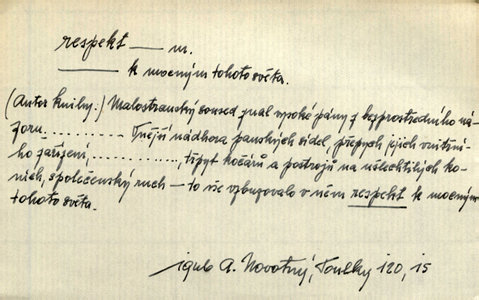 respekt — m.
——— k mocným tohoto světa.
(Autor knihy.) Malostranský soused znal vysoké pány z bezprostředního ná-
zoru. . . . . . . . . . . Vnější nádhera panských sídel, přepych jejich vnitřní-
ho zařízení, . . . . . . . . . . . . , třpyt kočárů a postrojů na ušlechtilých ko-
ních, společenský ruch — to vše vzbuzovalo v něm respekt k mocným
tohoto světa.
A. Novotný, Toulky 120, 15